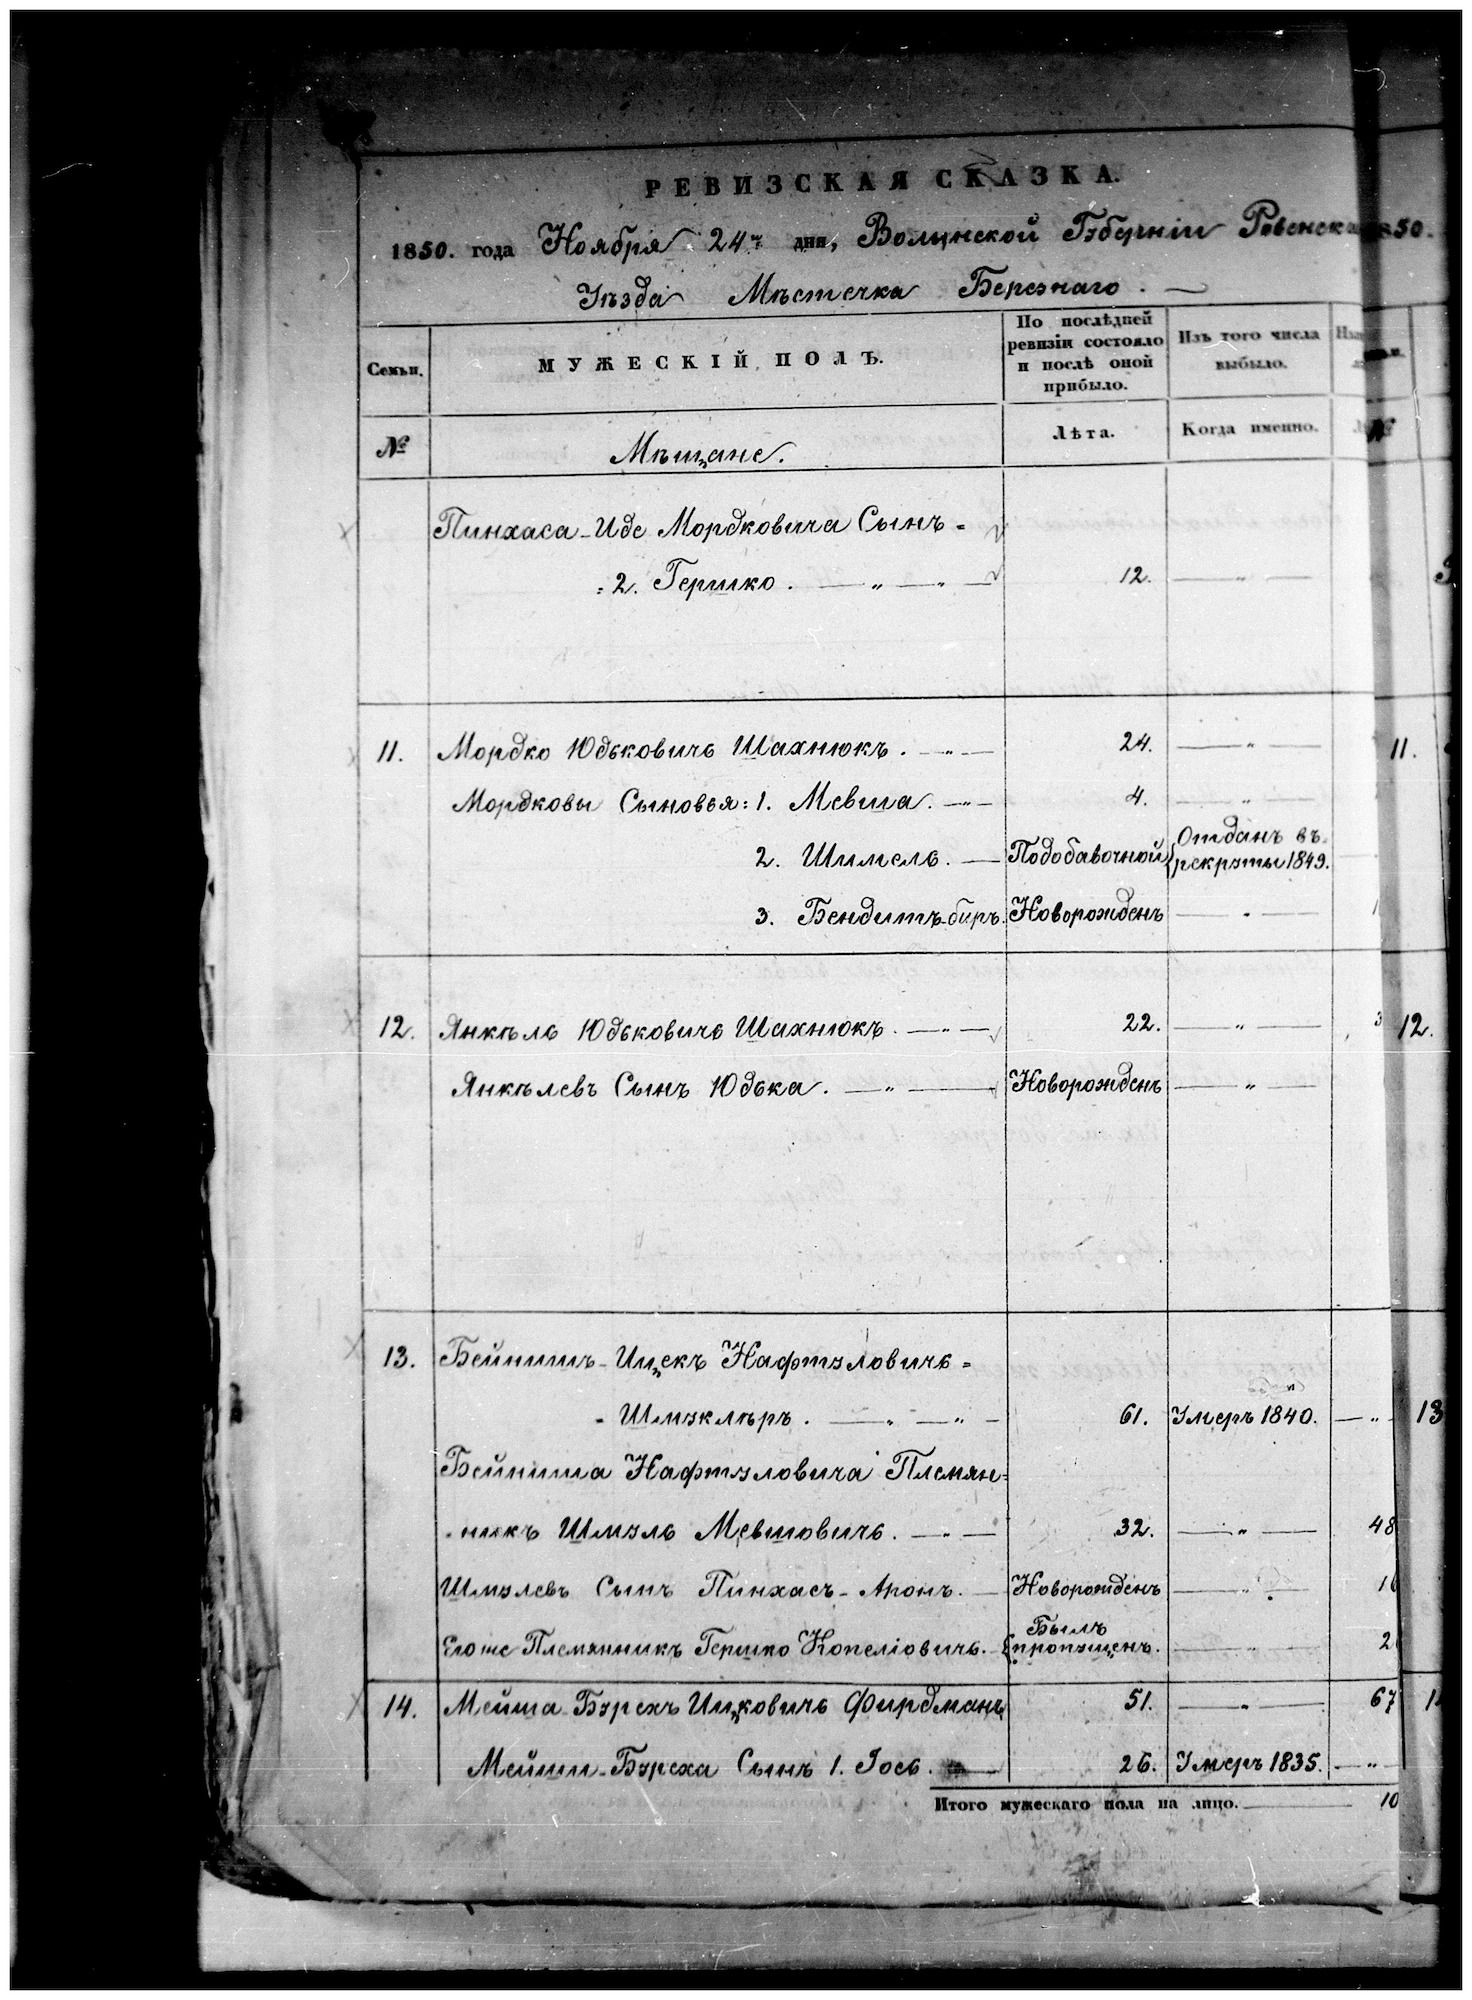 РЕВИЗСКАЯ СКАЗКА.
1850. года Ноября 24 дня, Волынской Губерніи Ровенска 850.
Уѣзда Мѣстечка Березнаго.
Семьи. МУЖЕСКІЙ ПОЛЪ. По послѣдней ревизіи состояло и послѣ оной прибыло. Изъ того числа выбыло.
№ Мѣщане. Лѣта. Когда именно. №
Пинхаса-Иде Мордковича Сынъ =
= 2. Гершко. — „ — „ — 12. — „ —
11. Мордко Юдьковичь Шахнюкъ. — „ — 24. — „ — 11.
Мордковы Сыновья: 1. Мевша. — „ — 4. — „ —
2. Шимель. — Подобавочной Отданъ въ рекруты 1849.
3. Бендитъ-биръ. Новорожденъ — „ —
12. Янкѣль Юдьковичь Шахнюкъ. — „ — 22. — „ — 3 12.
Янкѣлевъ Сынъ Юдька. — „ — Новорожденъ — „ —
13. Бейнишъ-Ицекъ Нафтуловичь =
= Шмуклѣръ. — „ — „ — 61. Умеръ 1840. — „ — 13
Бейниша Нафтуловича Племян=
= никъ Шмуль Мевшовичь. — „ — 32. — „ — 48
Шмулевъ Сынъ Пинхасъ-Аронъ. — Новорожденъ — „ — 16
Егоже Племянникъ Гершко Копеліовичь. — Былъ пропущенъ. — „ — 2
14. Мейша-Бурехъ Ицковичь Фирдманъ 51. — „ — 67 1
Мейши-Буреха Сынъ 1. Іось. — 26. Умеръ 1835. — „ —
Итого мужескаго пола на лицо. — 10